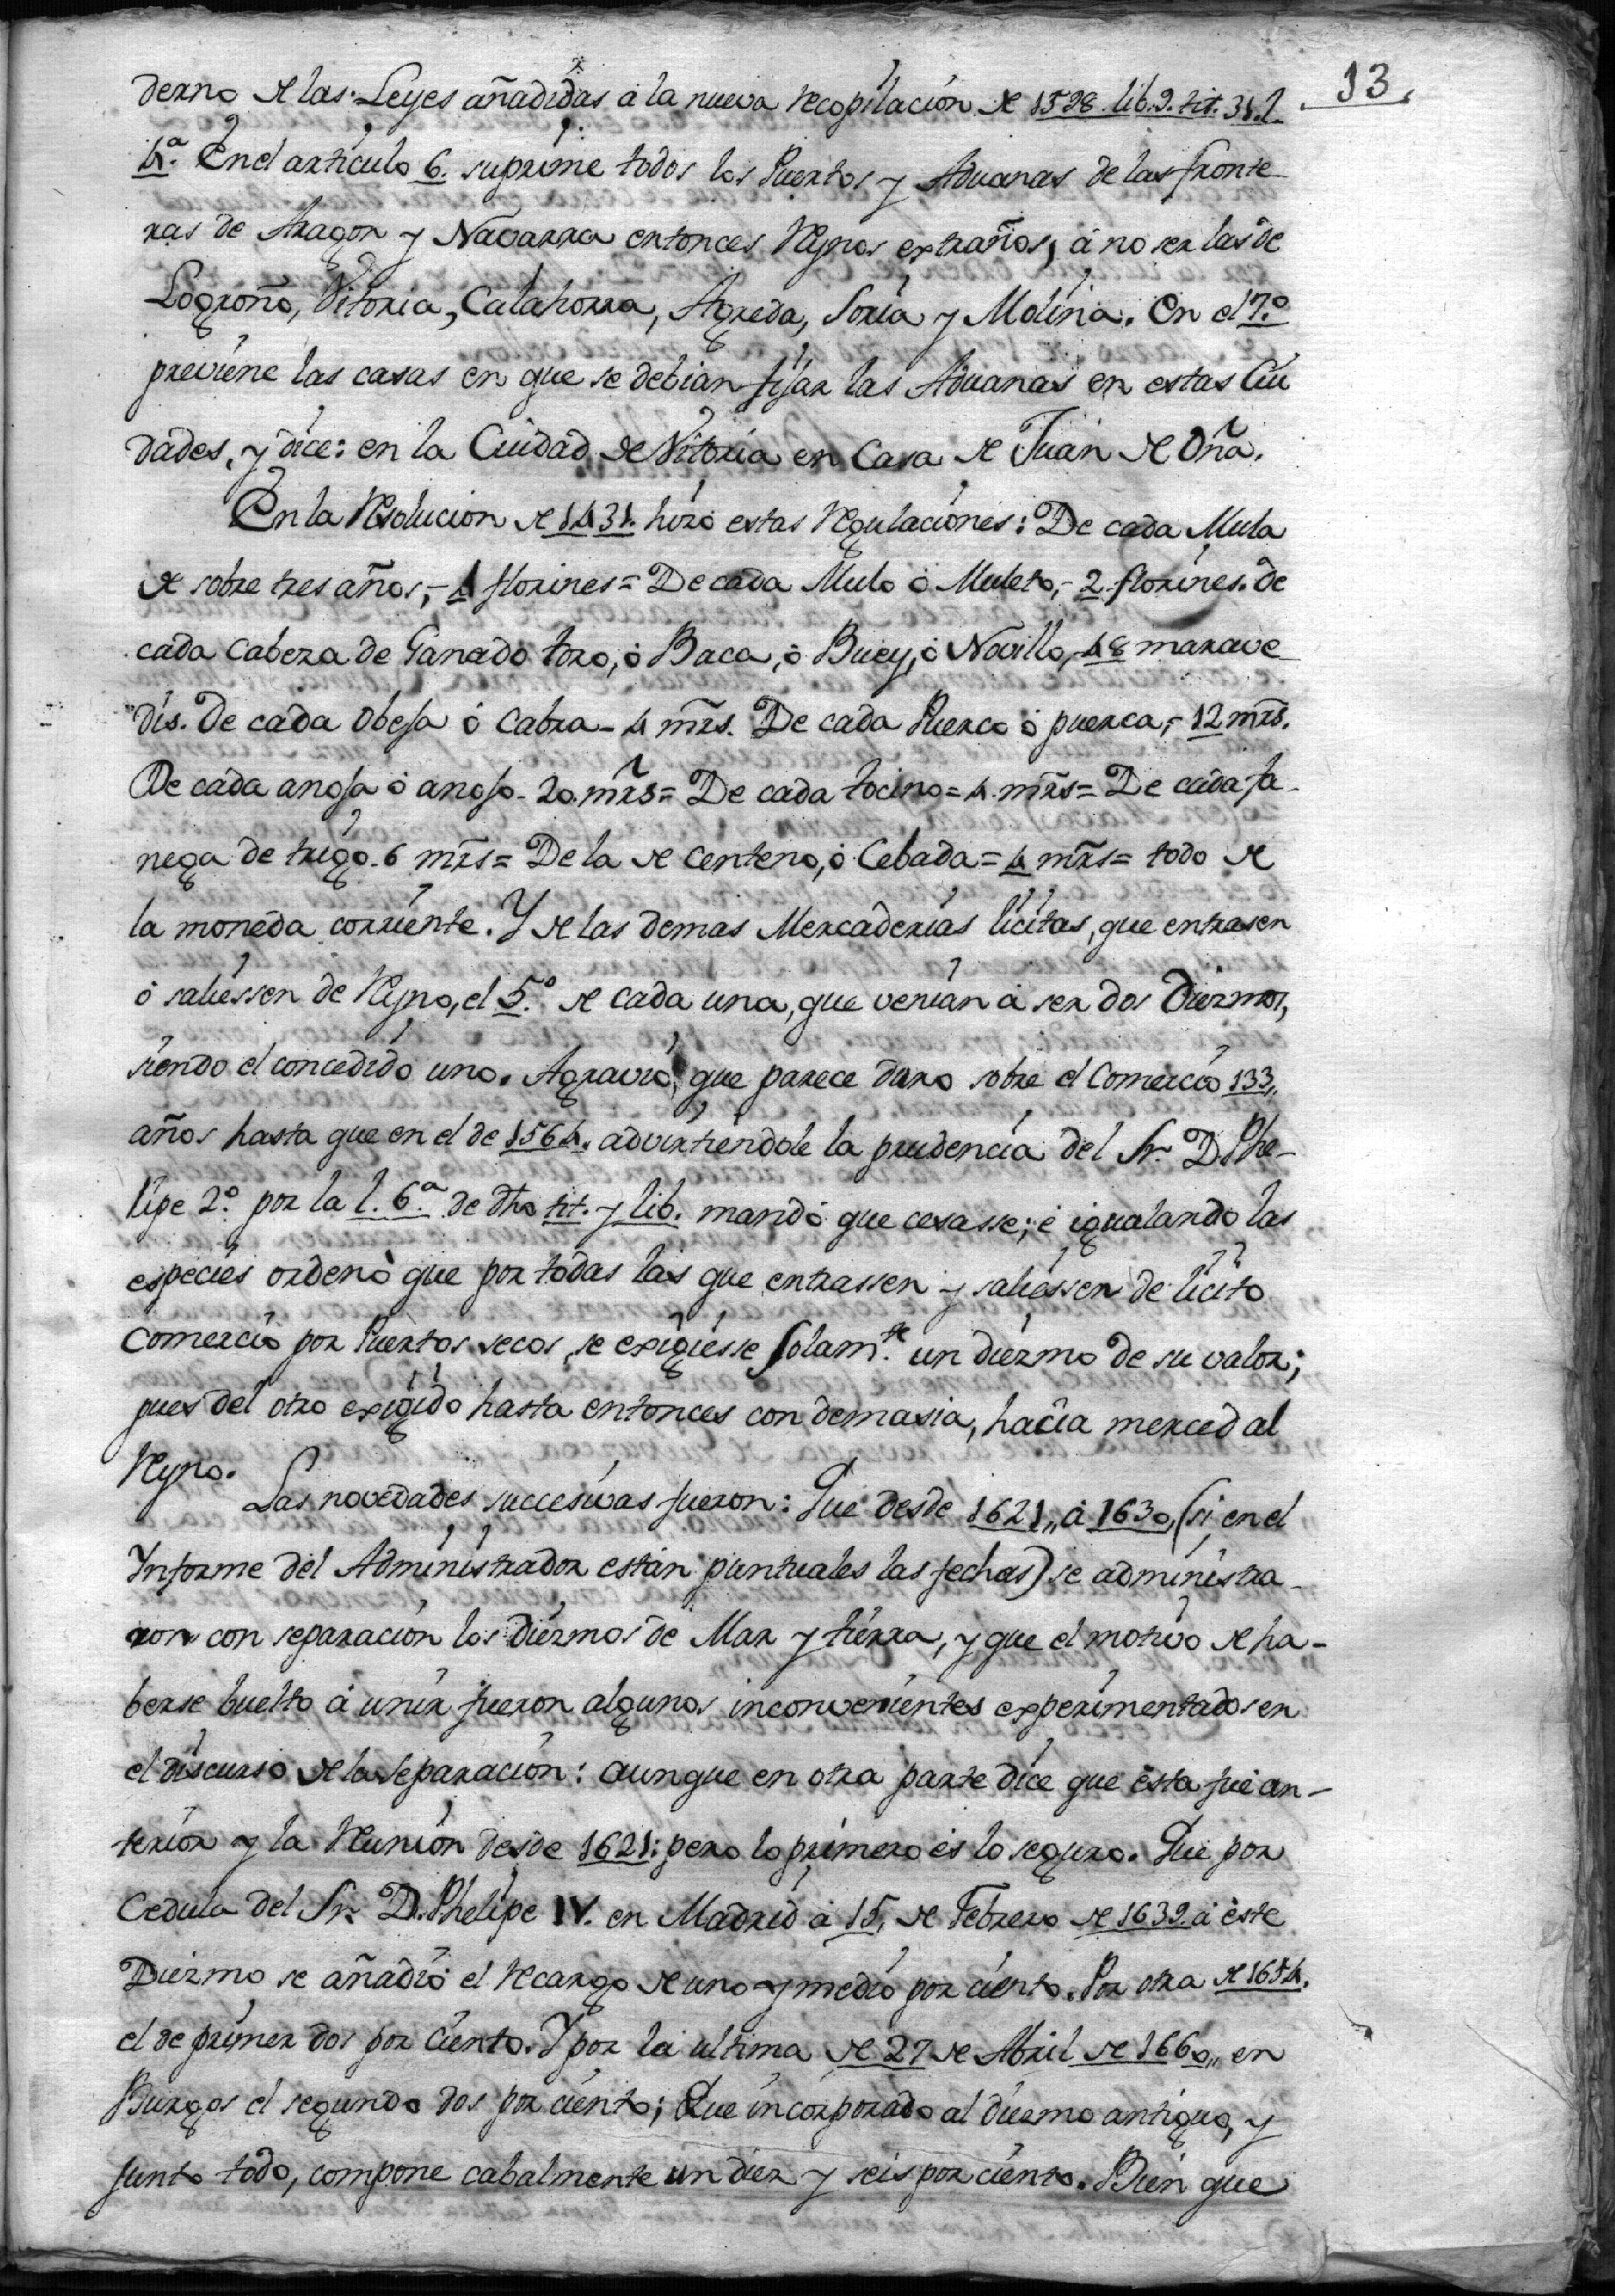 13.
derno de las Leyes añadidas à la nueva recopilacion de 1528. lib. 9. tit. 31. l.
4.ª En el articulo 6. suprime todos los Puertos y Aduanas de las fronte
ras de Aragon y Navarra entonces Reynos extraños, à no ser las de
Logroño, Vitoria, Calahorra, Agreda, Soria y Molina. En el 7.º
previene las casas en que se debian fijar las Aduanas en estas Ciu
dades, y dice: en la Ciudad de Vitoria en Casa de Juan de Oña.
En la Resolucion de 1431. hizo estas Regulaciones: De cada Mula
de sobre tres años,- 4 florines= De cada Mulo ò Muleto,- 2 florines. de
cada Cabeza de Ganado toro, ò Baca, ò Buey, ò Novillo,- 48 marave
dis. De cada Obeja ó Cabra- 4 mrs. De cada Puerco ò puerca,- 12 mrs.
De cada anoja ò anojo- 20. mrs= De cada tocino= 4. mrs= De cada fa-
nega de trigo- 6 mrs= De la de Centeno, ò Cebada= 4 mrs= todo de
la moneda corriente. Y de las demas Mercaderias licitas, que entrasen
ò saliessen de Reyno, el 5.º de cada una, que venian à ser dos Diezmos,
siendo el concedido uno. Agravio, que parece duro sobre el Comercio 133,,
años hasta que en el de 1564. advirtiendole la prudencia del Sr. D. Phe-
lipe 2.º por la l. 6.ª de dho tit. y lib. mandò que cesasse; è igualando las
especies ordenò que por todas las que entrassen y saliessen de licito
Comercio por Puertos secos, se exigiesse solam.te un diezmo de su valor;
pues del otro exigido hasta entonces con demasia, hacia merced al
Reyno.
Las novedades succesivas fueron: Que desde 1621,, à 1630, (si en el
Informe del Administrador están puntuales las fechas) se administra-
ron con separacion los Diezmos de Mar y tierra, y que el motivo de ha-
berse buelto à unir fueron algunos inconvenientes experimentados en
el discurso de la Separacion: aunque en otra parte dice que èsta fue an-
terior y la Reunion desde 1621: pero lo primero es lo seguro. Que por
Cedula del Sr. D. Phelipe IV. en Madrid à 15, de Febrero de 1639. à èste
Diezmo se añadió el Recargo de uno y medio por ciento. Por otra de 1654.
el de primer dos por Ciento. Y por la ultima de 27 de Abril de 1660,, en
Burgos el segundo dos por ciento; Que incorporado al diezmo antiguo, y
junto todo, compone cabalmente un diez y seis por ciento. Bien que